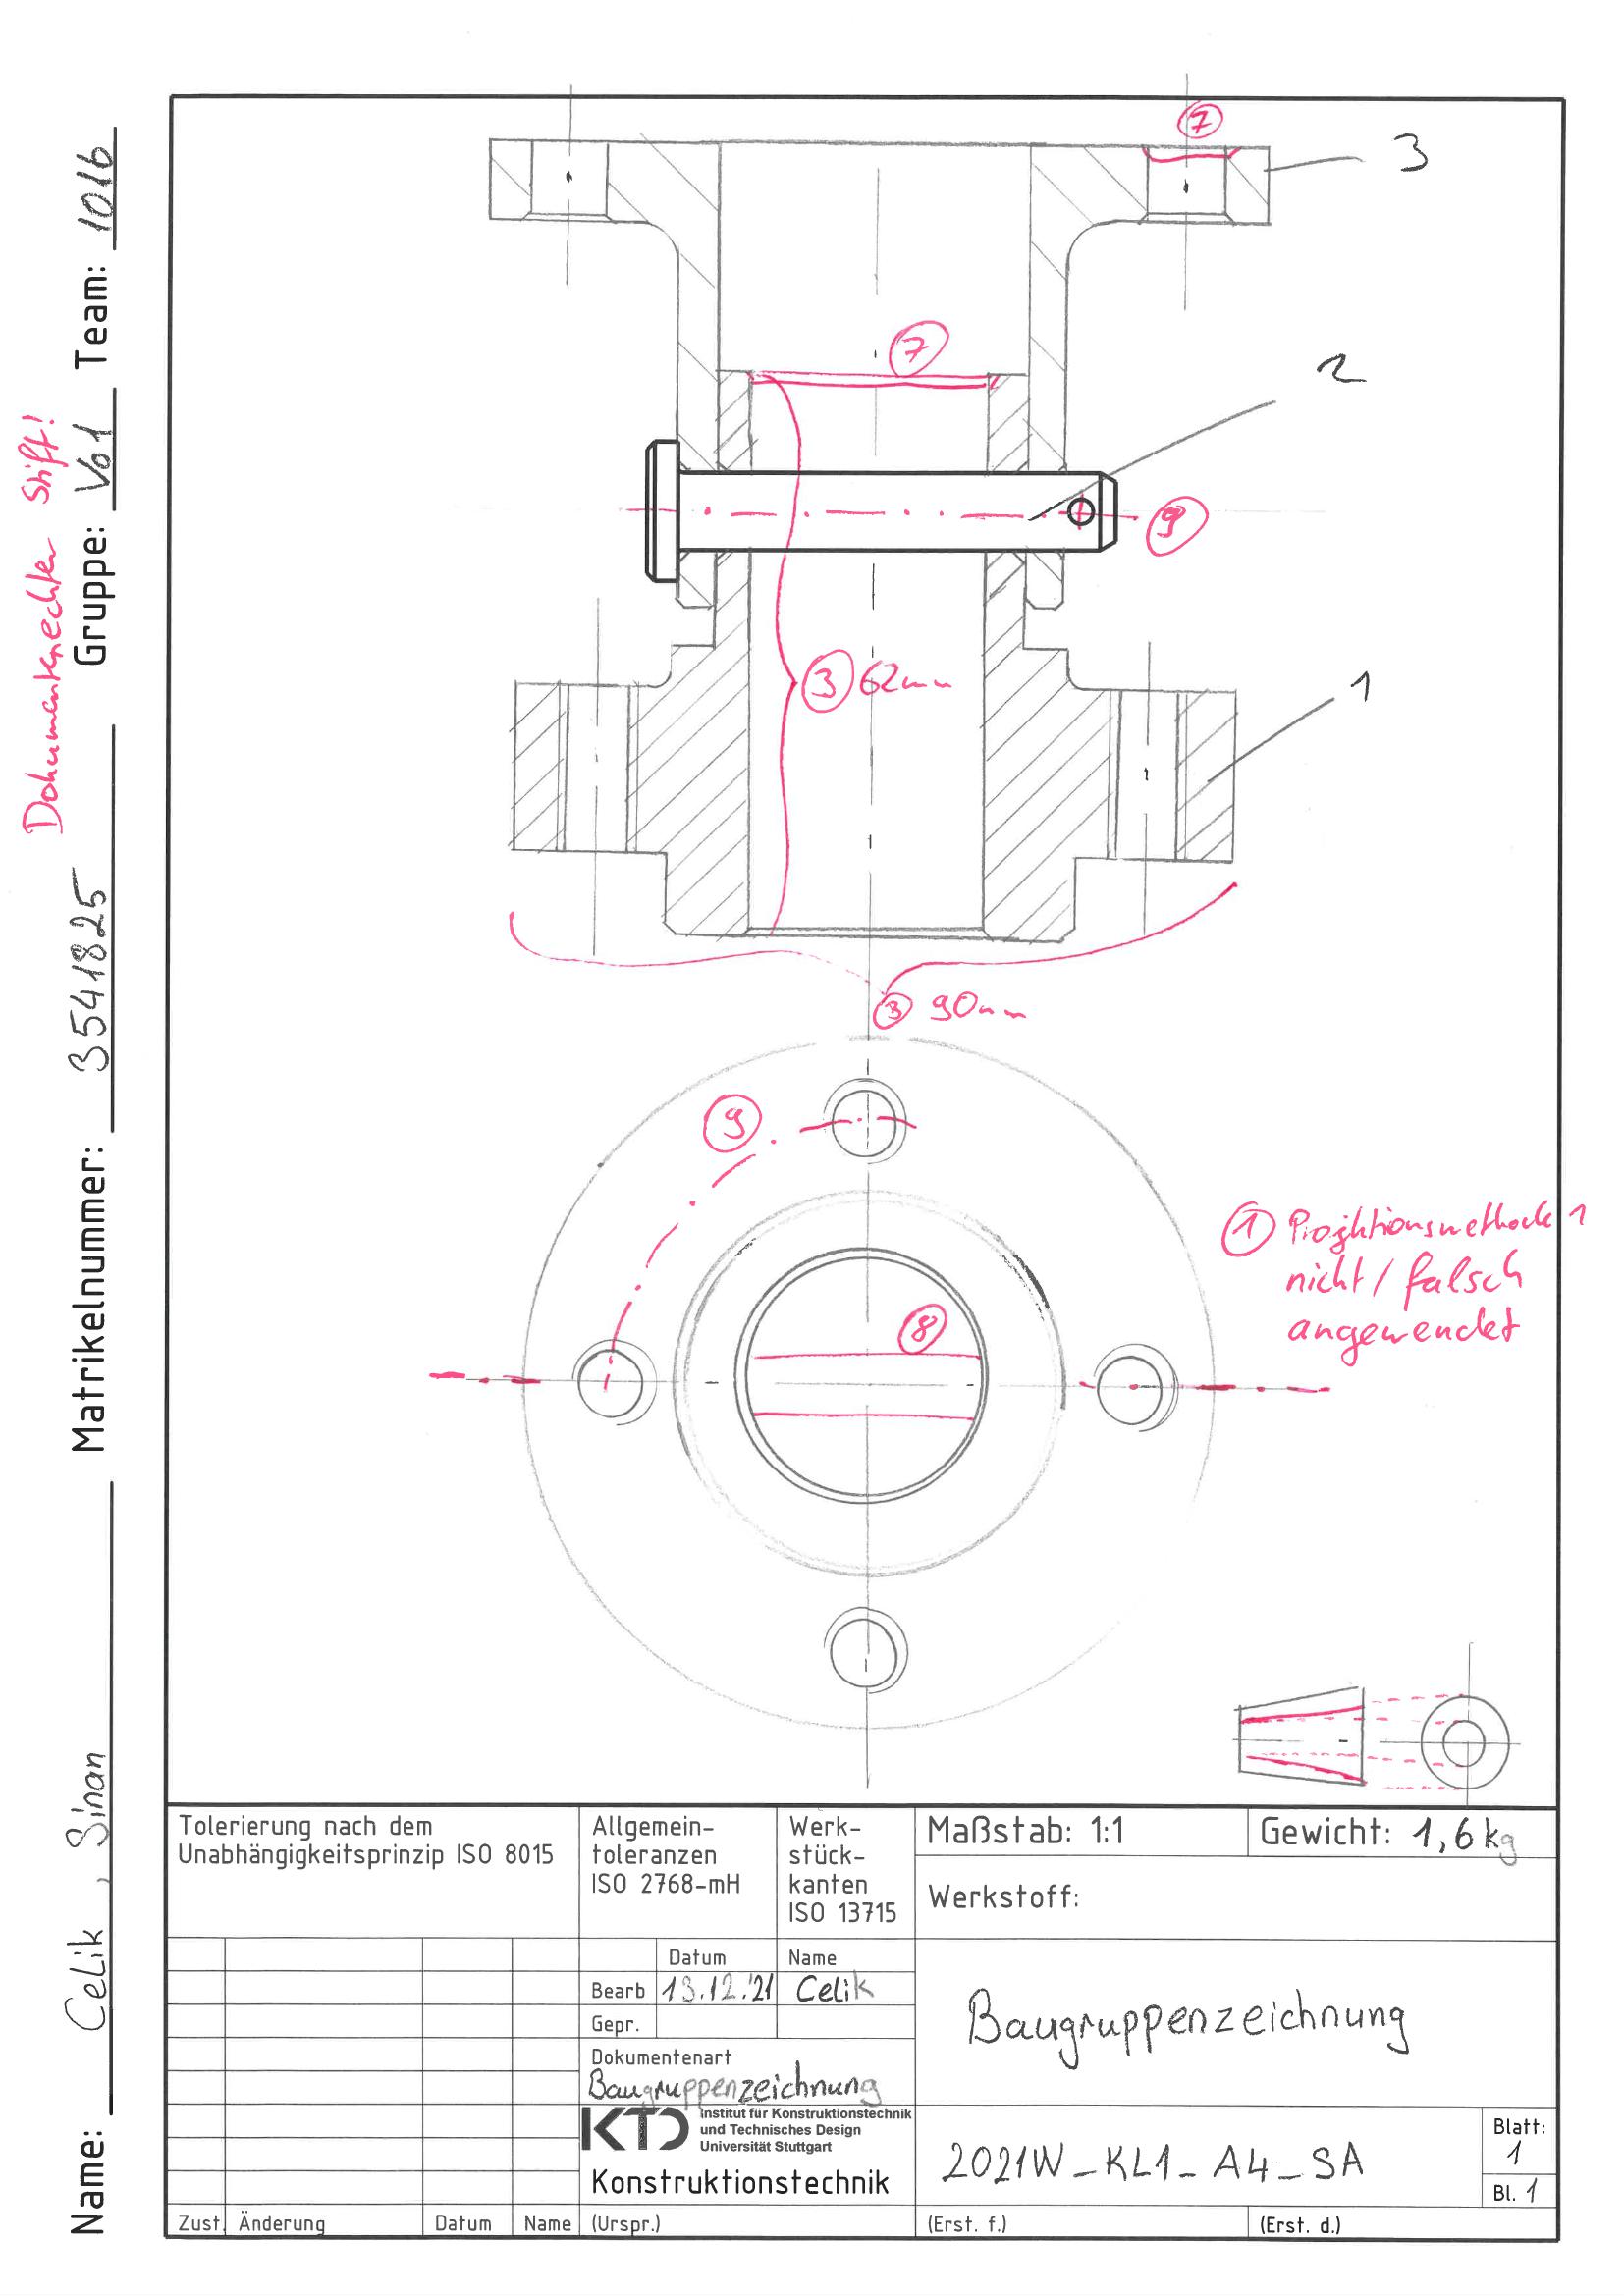 Name: Celik, Sinan Matrikelnummer: 3541825 Gruppe: Vo1 Team: 1016
Dokumentenechter Stift!
7
3
7
2
9
3 62mm
1
3 90mm
9
1 Projektionsmethode 1
nicht / falsch
angewendet
8
Tolerierung nach dem
Unabhängigkeitsprinzip ISO 8015
Allgemein-
toleranzen
ISO 2768-mH
Werk-
stück-
kanten
ISO 13715
Maßstab: 1:1
Gewicht: 1,6kg
Werkstoff:
Datum Name
Bearb 13.12.'21 Celik
Gepr.
Dokumentenart
Baugruppenzeichnung
Baugruppenzeichnung
KTD Institut für Konstruktionstechnik
und Technisches Design
Universität Stuttgart
Konstruktionstechnik
2021W_KL1_A4_SA
Blatt:
1
Bl. 1
Zust. Änderung Datum Name (Urspr.) (Erst. f.) (Erst. d.)